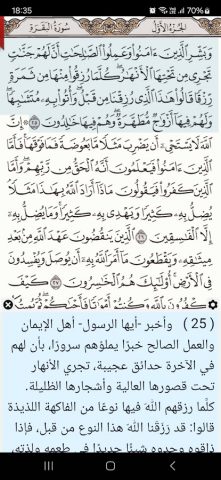 18:35 79%
الجُزْءُ الأَوَّلُ سُورَةُ البَقَرَةِ
وَبَشِّرِ ٱلَّذِينَ ءَامَنُوا۟ وَعَمِلُوا۟ ٱلصَّٰلِحَٰتِ أَنَّ لَهُمْ جَنَّٰتٍ
تَجْرِى مِن تَحْتِهَا ٱلْأَنْهَٰرُ ۖ كُلَّمَا رُزِقُوا۟ مِنْهَا مِن ثَمَرَةٍ
رِّزْقًا ۙ قَالُوا۟ هَٰذَا ٱلَّذِى رُزِقْنَا مِن قَبْلُ ۖ وَأُتُوا۟ بِهِۦ مُتَشَٰبِهًا ۖ
وَلَهُمْ فِيهَآ أَزْوَٰجٌ مُّطَهَّرَةٌ ۖ وَهُمْ فِيهَا خَٰلِدُونَ ٢٥ إِنَّ
ٱللَّهَ لَا يَسْتَحْىِۦٓ أَن يَضْرِبَ مَثَلًا مَّا بَعُوضَةً فَمَا فَوْقَهَا ۚ فَأَمَّا
ٱلَّذِينَ ءَامَنُوا۟ فَيَعْلَمُونَ أَنَّهُ ٱلْحَقُّ مِن رَّبِّهِمْ ۖ وَأَمَّا
ٱلَّذِينَ كَفَرُوا۟ فَيَقُولُونَ مَاذَآ أَرَادَ ٱللَّهُ بِهَٰذَا مَثَلًا ۘ
يُضِلُّ بِهِۦ كَثِيرًا وَيَهْدِى بِهِۦ كَثِيرًا ۚ وَمَا يُضِلُّ بِهِۦٓ
إِلَّا ٱلْفَٰسِقِينَ ٢٦ ٱلَّذِينَ يَنقُضُونَ عَهْدَ ٱللَّهِ مِنۢ بَعْدِ
مِيثَٰقِهِۦ وَيَقْطَعُونَ مَآ أَمَرَ ٱللَّهُ بِهِۦٓ أَن يُوصَلَ وَيُفْسِدُونَ
فِى ٱلْأَرْضِ ۚ أُو۟لَٰٓئِكَ هُمُ ٱلْخَٰسِرُونَ ٢٧ كَيْفَ
تَكْفُرُونَ بِٱللَّهِ وَكُنتُمْ أَمْوَٰتًا فَأَحْيَٰكُمْ ۖ ثُمَّ
( 25 ) وأخبر -أيها الرسول- أهل الإيمان
والعمل الصالح خبرًا يملؤهم سرورًا، بأن لهم
في الآخرة حدائق عجيبة، تجري الأنهار
تحت قصورها العالية وأشجارها الظليلة.
كلَّما رزقهم الله فيها نوعًا من الفاكهة اللذيذة
قالوا: قد رزَقَنا الله هذا النوع من قبل، فإذا
ذاقوه وجدوه شيئًا جديدًا في طعمه ولذته،